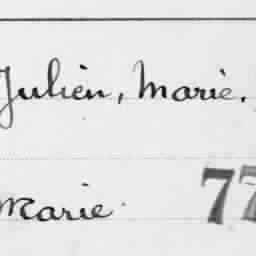 Julien, Marie.
Marie 77